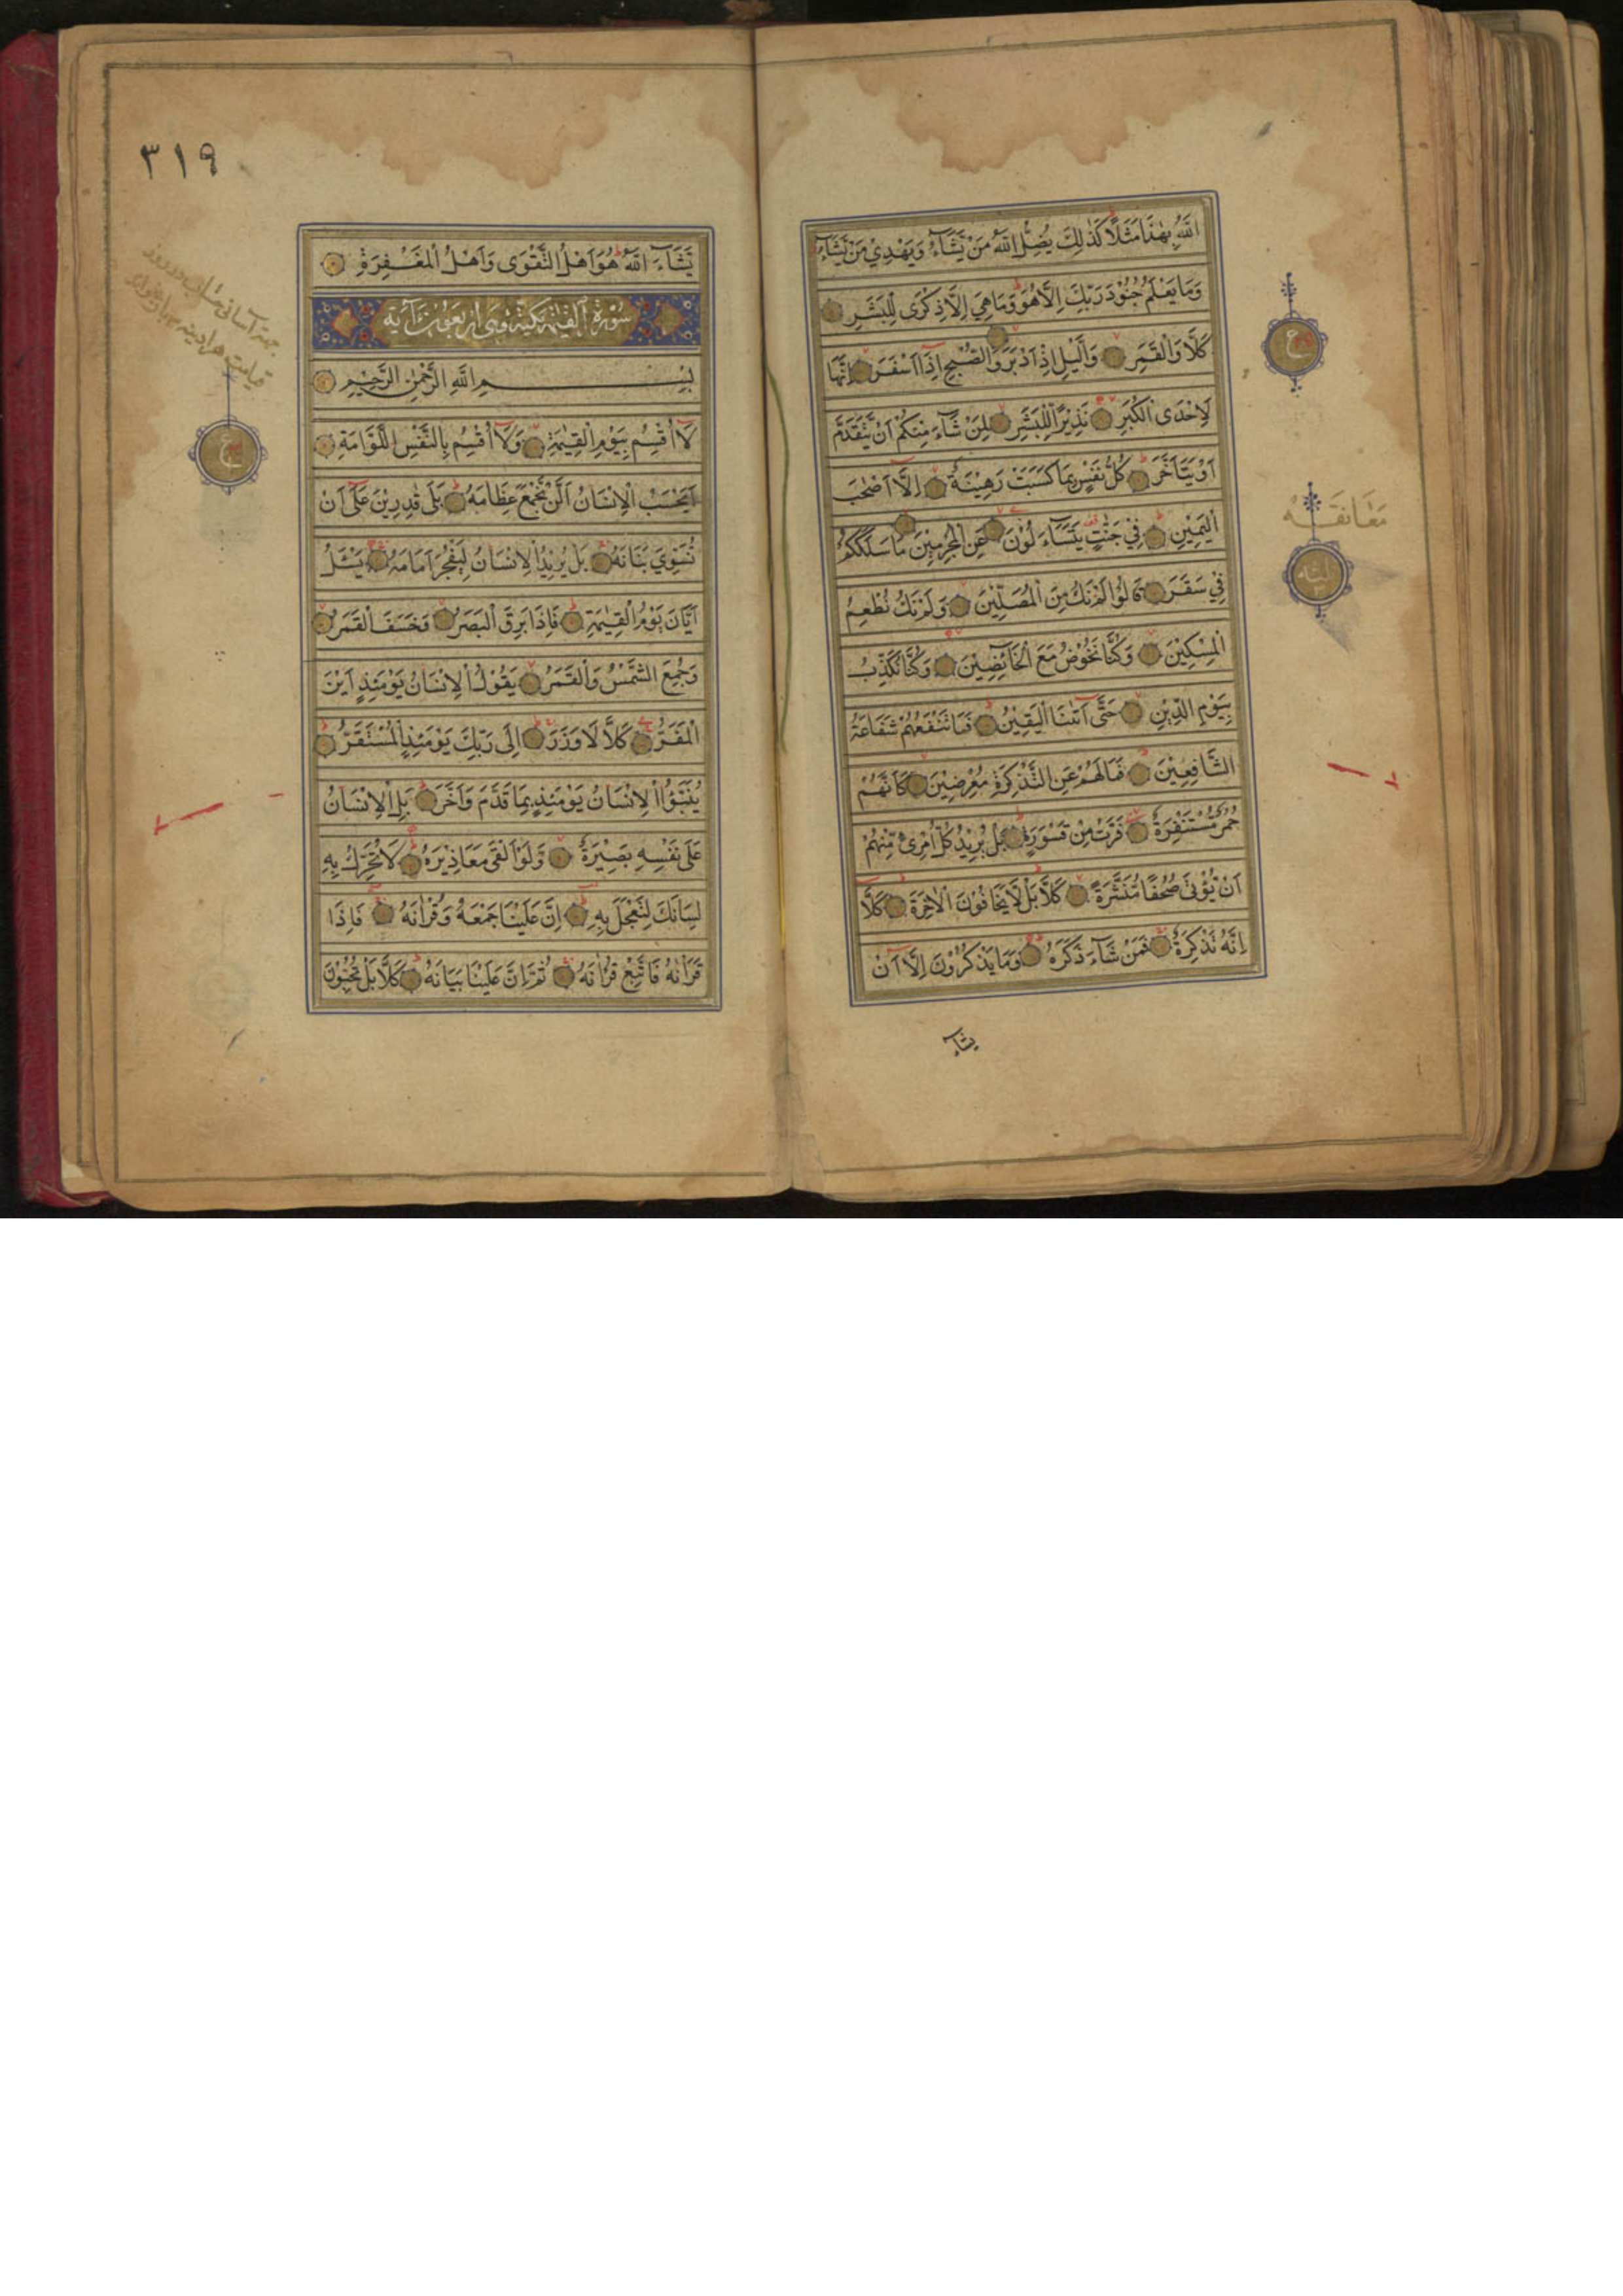 اللَّهُ بِهٰذَا مَثَلًا كَذٰلِكَ يُضِلُّ اللَّهُ مَنْ يَّشَآءُ وَيَهْدِيْ مَنْ يَّشَآءُ
وَمَا يَعْلَمُ جُنُوْدَ رَبِّكَ اِلَّا هُوَ وَمَا هِيَ اِلَّا ذِكْرٰى لِلْبَشَرِ
كَلَّا وَالْقَمَرِ وَالَّيْلِ اِذْ اَدْبَرَ وَالصُّبْحِ اِذَآ اَسْفَرَ اِنَّهَا
لَاِحْدَى الْكُبَرِ نَذِيْرًا لِلْبَشَرِ لِمَنْ شَآءَ مِنْكُمْ اَنْ يَّتَقَدَّمَ
اَوْ يَتَاَخَّرَ كُلُّ نَفْسٍ بِمَا كَسَبَتْ رَهِيْنَةٌ اِلَّآ اَصْحٰبَ
الْيَمِيْنِ فِيْ جَنّٰتٍ يَتَسَآءَلُوْنَ عَنِ الْمُجْرِمِيْنَ مَا سَلَكَكُمْ
فِيْ سَقَرَ قَالُوْا لَمْ نَكُ مِنَ الْمُصَلِّيْنَ وَلَمْ نَكُ نُطْعِمُ
الْمِسْكِيْنَ وَكُنَّا نَخُوْضُ مَعَ الْخَآئِضِيْنَ وَكُنَّا نُكَذِّبُ
بِيَوْمِ الدِّيْنِ حَتّٰى اَتٰىنَا الْيَقِيْنُ فَمَا تَنْفَعُهُمْ شَفَاعَةُ
الشَّافِعِيْنَ فَمَا لَهُمْ عَنِ التَّذْكِرَةِ مُعْرِضِيْنَ كَاَنَّهُمْ
حُمُرٌ مُسْتَنْفِرَةٌ فَرَّتْ مِنْ قَسْوَرَةٍ بَلْ يُرِيْدُ كُلُّ امْرِئٍ مِّنْهُمْ
اَنْ يُّؤْتٰى صُحُفًا مُنَشَّرَةً كَلَّا بَلْ لَّا يَخَافُوْنَ الْاٰخِرَةَ كَلَّآ
اِنَّهُ تَذْكِرَةٌ فَمَنْ شَآءَ ذَكَرَهُ وَمَا يَذْكُرُوْنَ اِلَّآ اَنْ
يشآء
ع
معانقه
٣١٩
يَّشَآءَ اللَّهُ هُوَ اَهْلُ التَّقْوٰى وَاَهْلُ الْمَغْفِرَةِ
سُوْرَةُ الْقِيٰمَةِ مَكِّيَّةٌ وَهِيَ اَرْبَعُوْنَ اٰيَة
بِسْمِ اللَّهِ الرَّحْمٰنِ الرَّحِيْمِ
لَآ اُقْسِمُ بِيَوْمِ الْقِيٰمَةِ وَلَآ اُقْسِمُ بِالنَّفْسِ اللَّوَّامَةِ
اَيَحْسَبُ الْاِنْسَانُ اَلَّنْ نَّجْمَعَ عِظَامَهُ بَلٰى قٰدِرِيْنَ عَلٰٓى اَنْ
نُّسَوِّيَ بَنَانَهُ بَلْ يُرِيْدُ الْاِنْسَانُ لِيَفْجُرَ اَمَامَهُ يَسْئَلُ
اَيَّانَ يَوْمُ الْقِيٰمَةِ فَاِذَا بَرِقَ الْبَصَرُ وَخَسَفَ الْقَمَرُ
وَجُمِعَ الشَّمْسُ وَالْقَمَرُ يَقُوْلُ الْاِنْسَانُ يَوْمَئِذٍ اَيْنَ
الْمَفَرُّ كَلَّا لَا وَزَرَ اِلٰى رَبِّكَ يَوْمَئِذِ الْمُسْتَقَرُّ
يُنَبَّؤُا الْاِنْسَانُ يَوْمَئِذٍ بِمَا قَدَّمَ وَاَخَّرَ بَلِ الْاِنْسَانُ
عَلٰى نَفْسِهِ بَصِيْرَةٌ وَّلَوْ اَلْقٰى مَعَاذِيْرَهُ لَا تُحَرِّكْ بِهِ
لِسَانَكَ لِتَعْجَلَ بِهِ اِنَّ عَلَيْنَا جَمْعَهُ وَقُرْاٰنَهُ فَاِذَا
قَرَاْنٰهُ فَاتَّبِعْ قُرْاٰنَهُ ثُمَّ اِنَّ عَلَيْنَا بَيَانَهُ كَلَّا بَلْ تُحِبُّوْنَ
ع